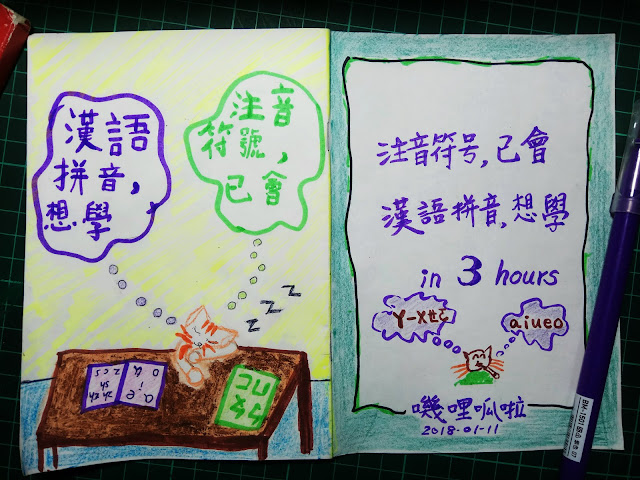 漢語
拼音,
想學
注音
符號,
已會
z z z
注音符号,已會
漢語拼音,想學
in 3 hours
ㄚㄧㄨㄝㄛ
aiueo
嘰哩呱啦
2018-01-11